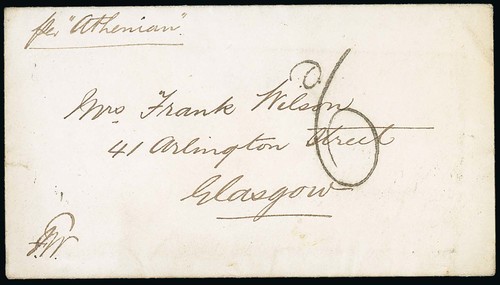 per "Athenian".
6
Mrs Frank Wilson
41 Arlington Street
Glasgow
F.W.